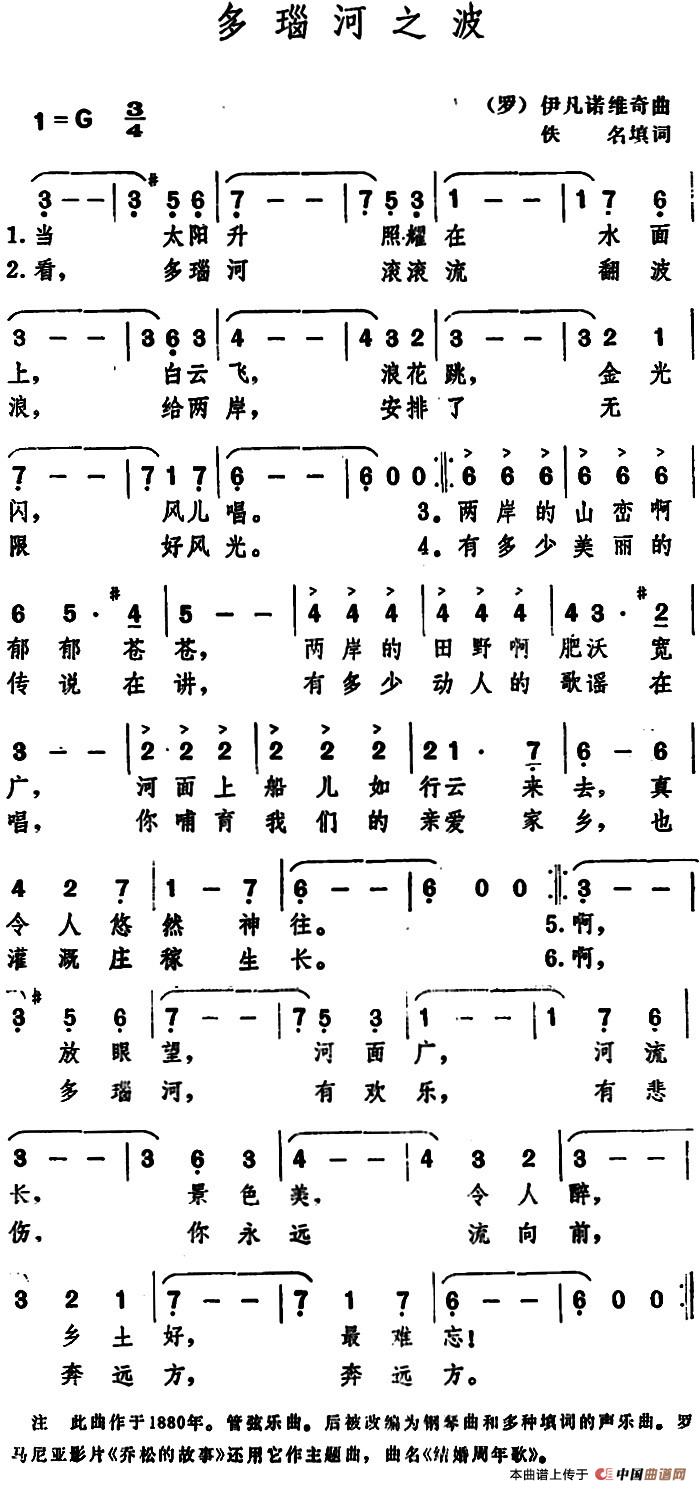 多瑙河之波
1=G 3/4
（罗）伊凡诺维奇曲
佚 名填词
3 - - | 3 #5 6 | 7 - - | 7 5 3 | 1 - - | 1 7 6 |
1.当 太阳升 照耀在 水面
2.看， 多瑙河 滚滚流 翻波
3 - - | 3 6 3 | 4 - - | 4 3 2 | 3 - - | 3 2 1 |
上， 白云飞， 浪花跳， 金光
浪， 给两岸， 安排了 无
7 - - | 7 1 7 | 6 - - | 6 0 0 :||: 6 6 6 | 6 6 6 |
闪， 风儿唱。 3.两岸的山峦啊
限 好风光。 4.有多少美丽的
6 5· #4 | 5 - - | 4 4 4 | 4 4 4 | 4 3· #2 |
郁郁苍苍， 两岸的田野啊肥沃宽
传说在讲， 有多少动人的歌谣在
3 - - | 2 2 2 | 2 2 2 | 2 1· 7 | 6 - 6 |
广， 河面上船儿如行云来去，真
唱， 你哺育我们的亲爱家乡，也
4 2 7 | 1 - 7 | 6 - - | 6 0 0 :||: 3 - - |
令人悠然神往。 5.啊，
灌溉庄稼生长。 6.啊，
3 #5 6 | 7 - - | 7 5 3 | 1 - - | 1 7 6 |
放眼望， 河面广， 河流
多瑙河， 有欢乐， 有悲
3 - - | 3 6 3 | 4 - - | 4 3 2 | 3 - - |
长， 景色美， 令人醉，
伤， 你永远 流向前，
3 2 1 | 7 - - | 7 1 7 | 6 - - | 6 0 0 :||
乡土好， 最难忘！
奔远方， 奔远方。
注 此曲作于1880年。管弦乐曲。后被改编为钢琴曲和多种填词的声乐曲。罗
马尼亚影片《乔松的故事》还用它作主题曲，曲名《结婚周年歌》。
本曲谱上传于 中国曲谱网